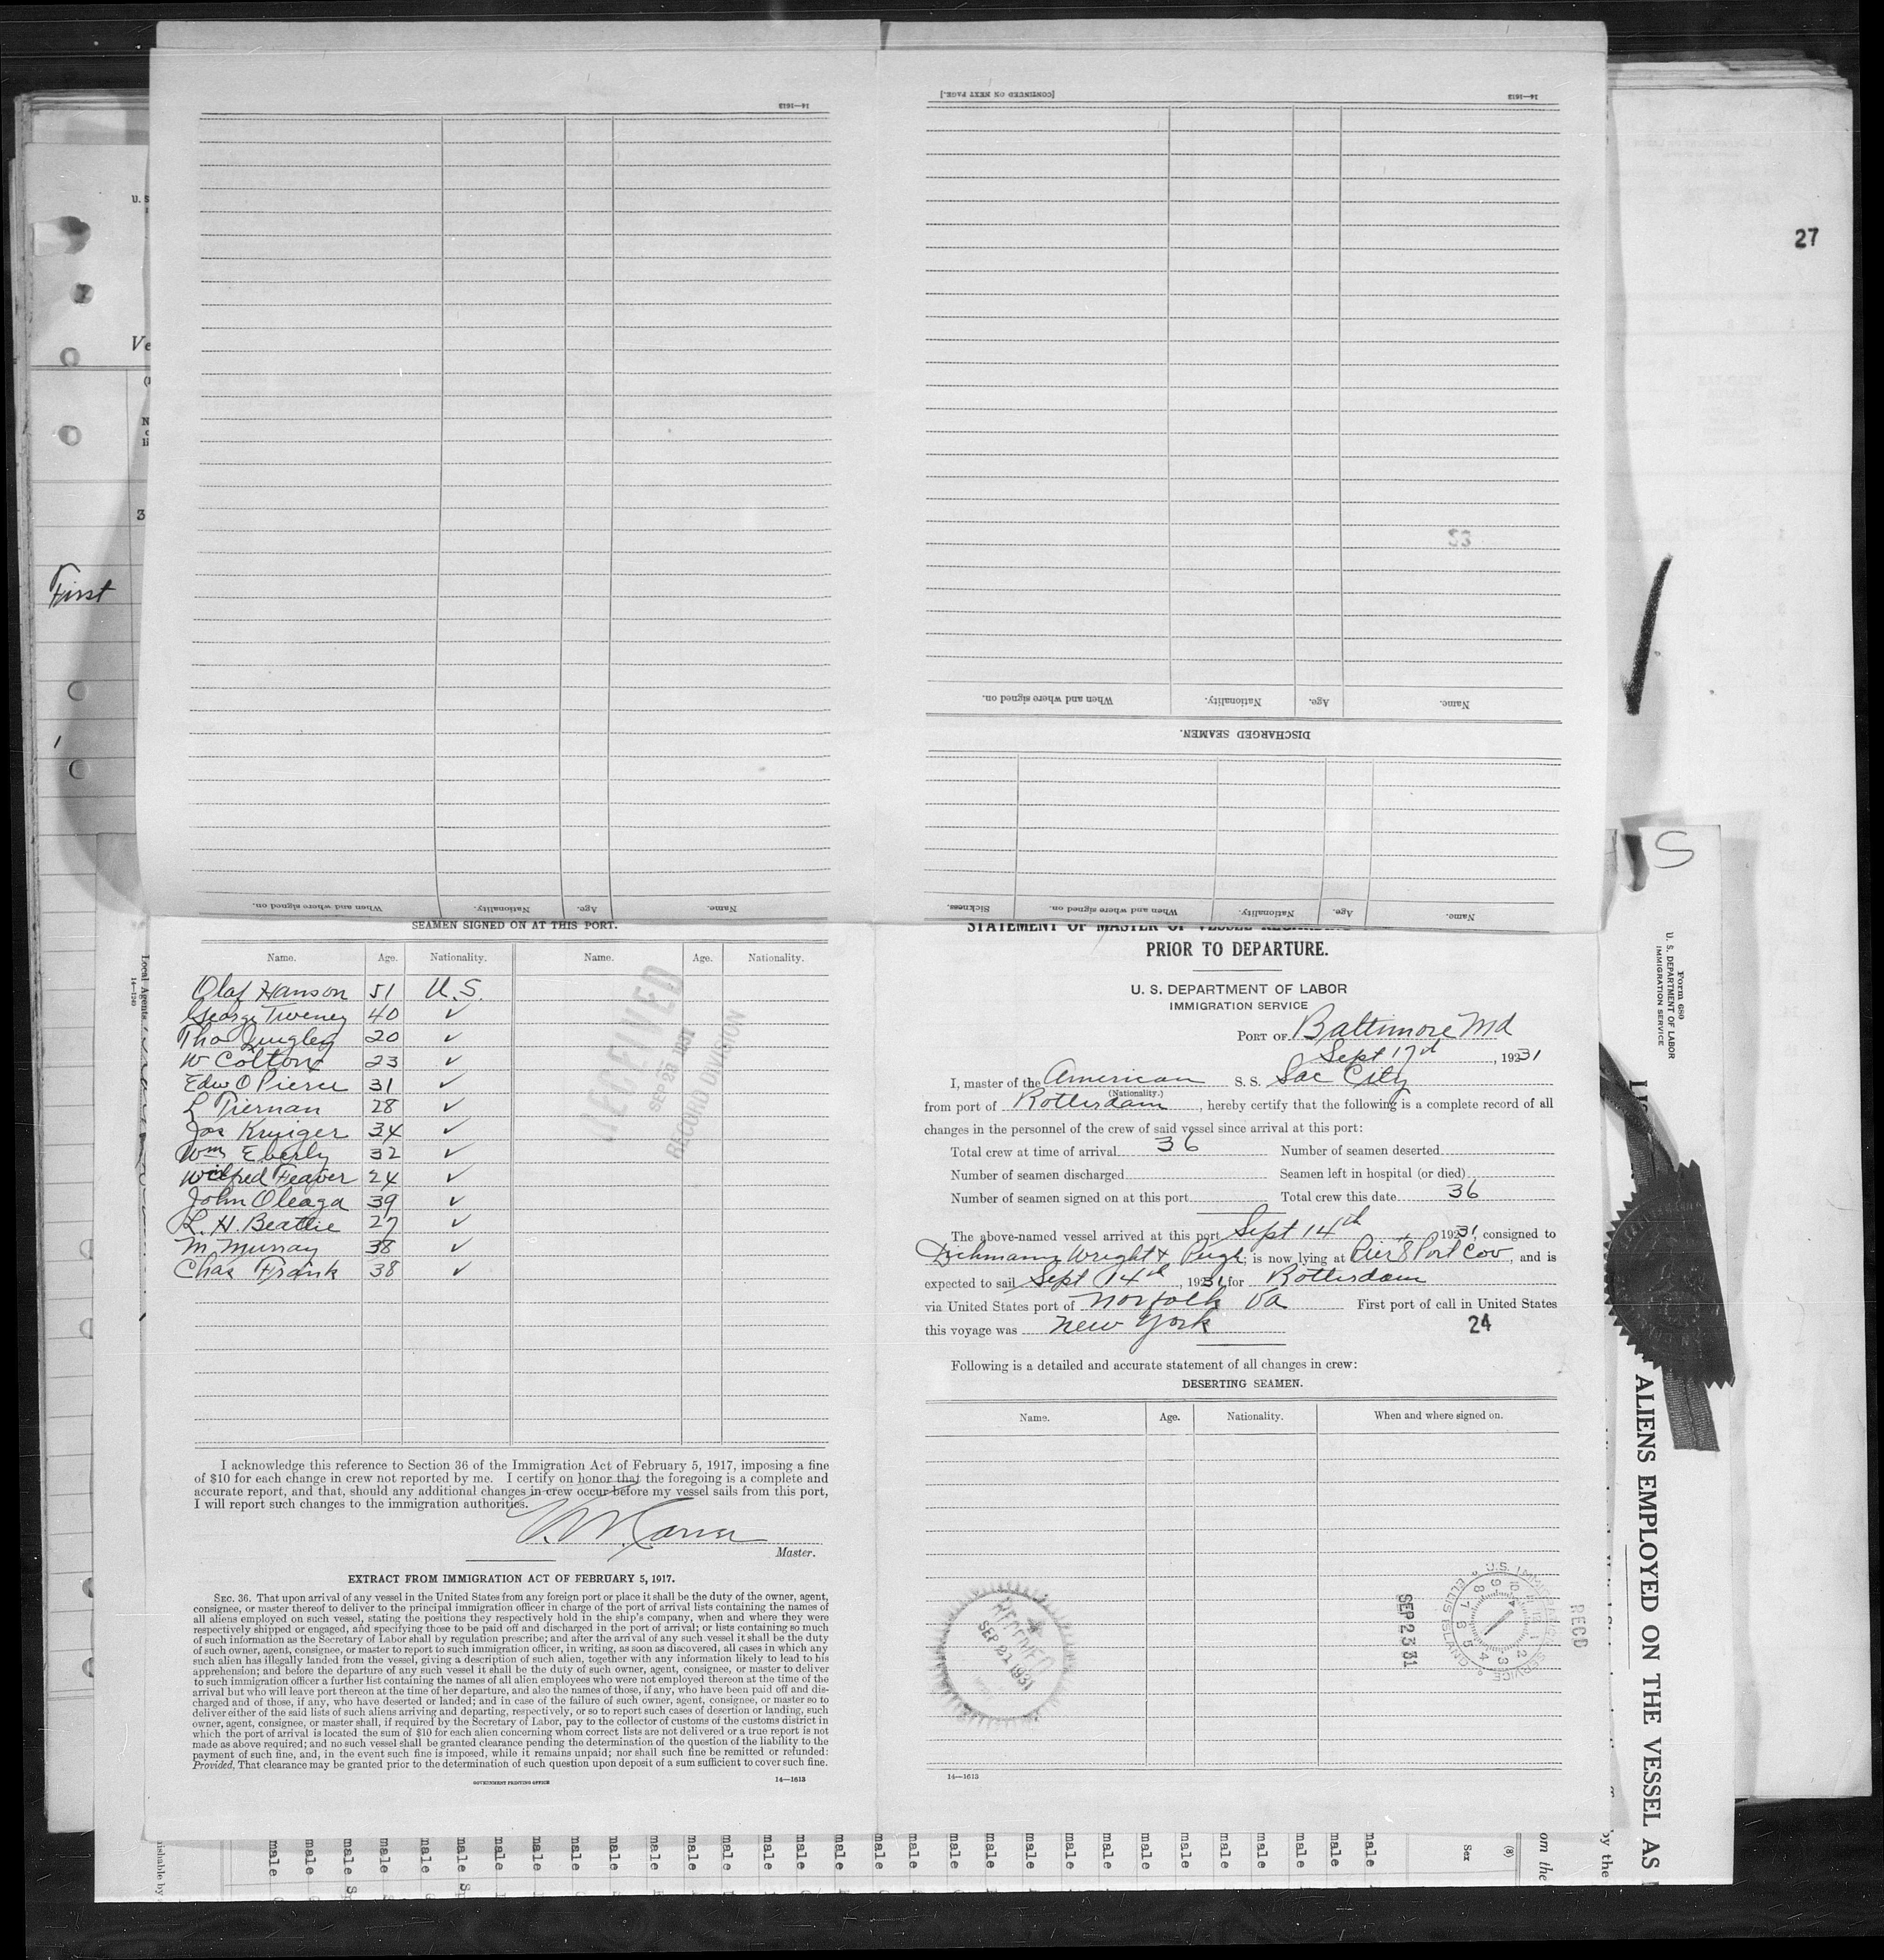 14—1613
[CONTINUED ON NEXT PAGE.]
14—1613
27
U. S
Ve
First
3
53
When and where signed on.
Nationality.
Age.
Name.
DISCHARGED SEAMEN.
When and where signed on.
Nationality.
Age.
Name.
Sickness.
When and where signed on.
Nationality.
Age.
Name.
SEAMEN SIGNED ON AT THIS PORT.
Name. Age. Nationality. Name. Age. Nationality.
Olaf Hanson 51 U.S.
George Tweney 40 ✓
Tho Quigley 20 ✓
W Colton 23 ✓
Edw O Pierce 31 ✓
L Tiernan 28 ✓
Jos Kruiger 34 ✓
Wm Eberly 32 ✓
Wilfred Feaver 24 ✓
John Oleaga 39 ✓
L. H. Beattie 27 ✓
M Murray 38 ✓
Chas Frank 38 ✓
RECEIVED
SEP 23 1931
RECORD DIVISION
I acknowledge this reference to Section 36 of the Immigration Act of February 5, 1917, imposing a fine
of $10 for each change in crew not reported by me. I certify on honor that the foregoing is a complete and
accurate report, and that, should any additional changes in crew occur before my vessel sails from this port,
I will report such changes to the immigration authorities.
Master.
EXTRACT FROM IMMIGRATION ACT OF FEBRUARY 5, 1917.
SEC. 36. That upon arrival of any vessel in the United States from any foreign port or place it shall be the duty of the owner, agent,
consignee, or master thereof to deliver to the principal immigration officer in charge of the port of arrival lists containing the names of
all aliens employed on such vessel, stating the positions they respectively hold in the ship's company, when and where they were
respectively shipped or engaged, and specifying those to be paid off and discharged in the port of arrival; or lists containing so much
of such information as the Secretary of Labor shall by regulation prescribe; and after the arrival of any such vessel it shall be the duty
of such owner, agent, consignee, or master to report to such immigration officer, in writing, as soon as discovered, all cases in which any
such alien has illegally landed from the vessel, giving a description of such alien, together with any information likely to lead to his
apprehension; and before the departure of any such vessel it shall be the duty of such owner, agent, consignee, or master to deliver
to such immigration officer a further list containing the names of all alien employees who were not employed thereon at the time of the
arrival but who will leave port thereon at the time of her departure, and also the names of those, if any, who have been paid off and dis-
charged and of those, if any, who have deserted or landed; and in case of the failure of such owner, agent, consignee, or master so to
deliver either of the said lists of such aliens arriving and departing, respectively, or so to report such cases of desertion or landing, such
owner, agent, consignee, or master shall, if required by the Secretary of Labor, pay to the collector of customs of the customs district in
which the port of arrival is located the sum of $10 for each alien concerning whom correct lists are not delivered or a true report is not
made as above required; and no such vessel shall be granted clearance pending the determination of the question of the liability to the
payment of such fine, and, in the event such fine is imposed, while it remains unpaid; nor shall such fine be remitted or refunded:
Provided, That clearance may be granted prior to the determination of such question upon deposit of a sum sufficient to cover such fine.
GOVERNMENT PRINTING OFFICE 14—1613
STATEMENT OF MASTER OF VESSEL REGARDING
PRIOR TO DEPARTURE.
U. S. DEPARTMENT OF LABOR
IMMIGRATION SERVICE
PORT OF Baltimore Md
Sept 17th, 1931
I, master of the American S. S. Sac City
(Nationality.)
from port of Rotterdam, hereby certify that the following is a complete record of all
changes in the personnel of the crew of said vessel since arrival at this port:
Total crew at time of arrival 36 Number of seamen deserted
Number of seamen discharged Seamen left in hospital (or died)
Number of seamen signed on at this port Total crew this date 36
The above-named vessel arrived at this port Sept 14th 1931, consigned to
Dichmann Wright & Pugh; is now lying at Pier 8 Port Cov, and is
expected to sail Sept 14th, 1931, for Rotterdam
via United States port of Norfolk Va First port of call in United States
this voyage was New York 24
Following is a detailed and accurate statement of all changes in crew:
DESERTING SEAMEN.
Name. Age. Nationality. When and where signed on.
RECEIVED
SEP 21 1931
SEP 23 31
U.S. IMMIGRATION SERVICE ELLIS ISLAND
RECD
14—1613
S
Form 680
U. S. DEPARTMENT OF LABOR
IMMIGRATION SERVICE
ALIENS EMPLOYED ON THE VESSEL AS
Local Agents
14—1240
male male male male male male male male male male male male male male male male male male male male male male male male male male male male male
Sex
(8)
om the
by the